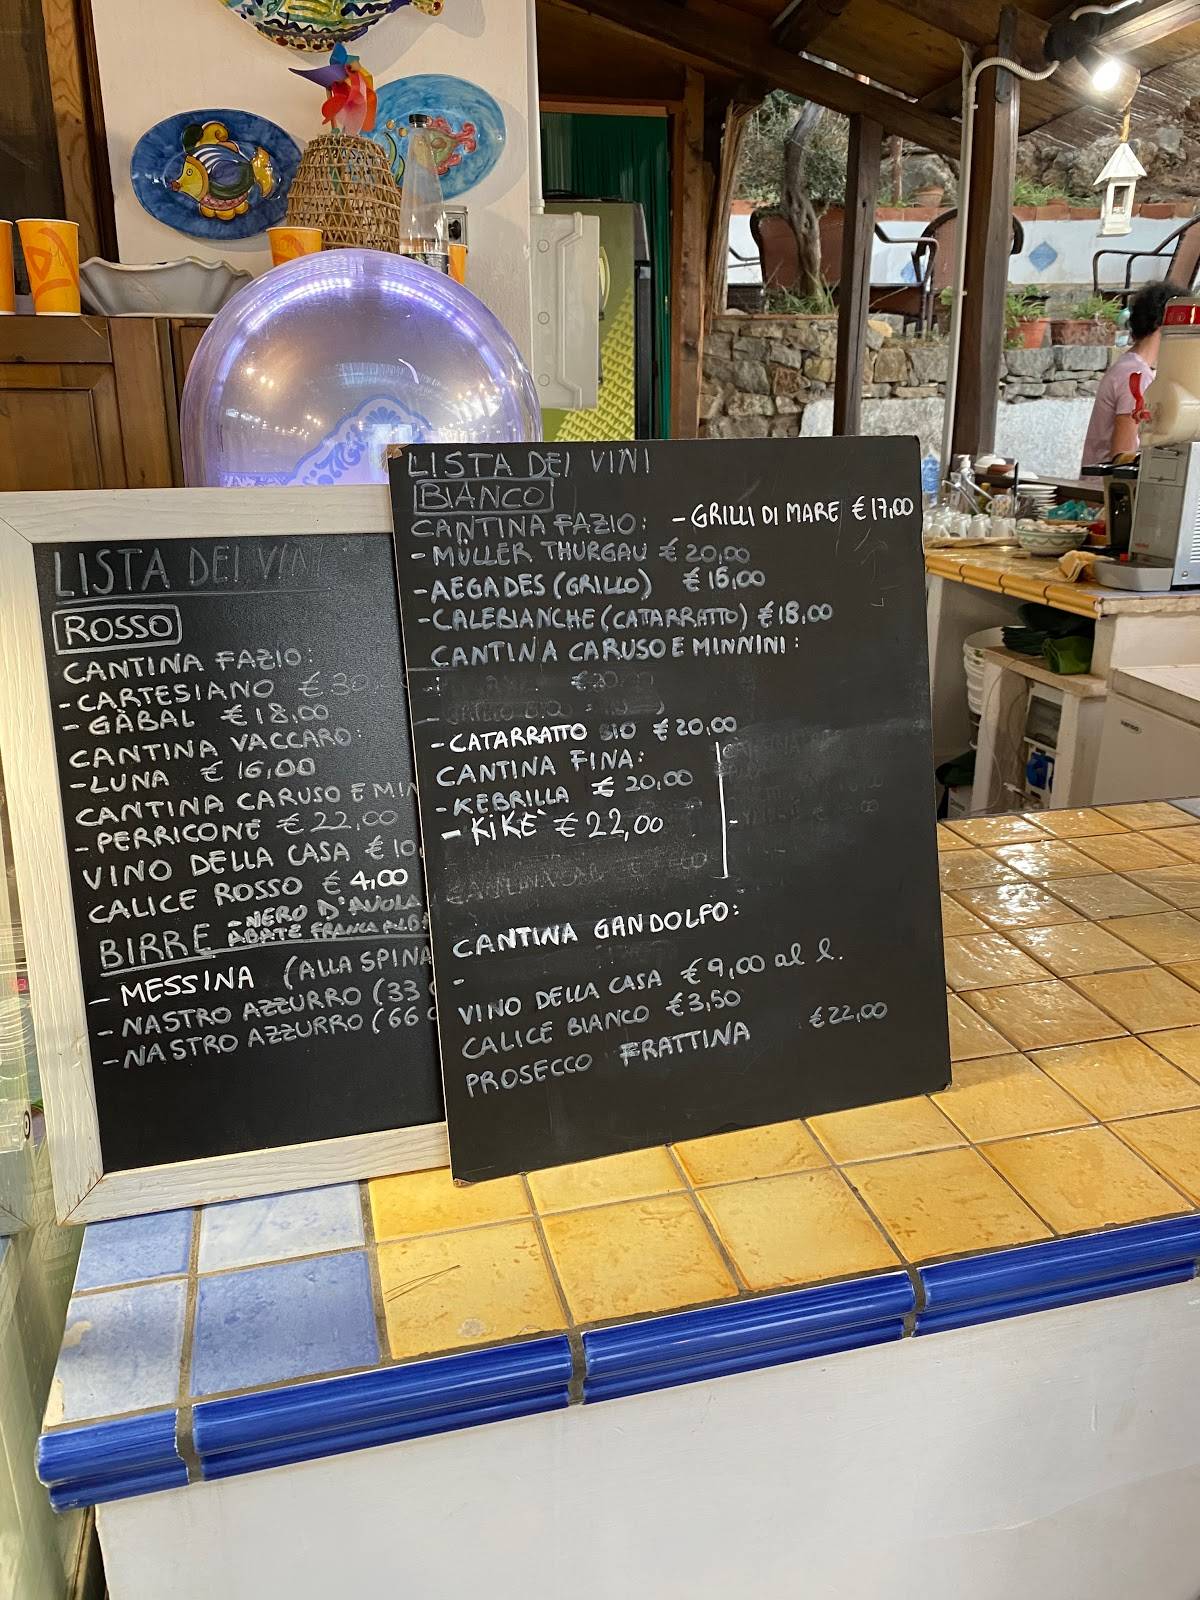 LISTA DEI VINI
ROSSO
CANTINA FAZIO:
- CARTESIANO € 30
- GÀBAL € 18,00
CANTINA VACCARO:
- LUNA € 16,00
CANTINA CARUSO E MIN
- PERRICONE € 22,00
VINO DELLA CASA € 10
CALICE ROSSO € 4,00
- NERO D'AVOLA
BIRRE ABATE FRANCA
- MESSINA (ALLA SPINA
- NASTRO AZZURRO (33
- NASTRO AZZURRO (66
LISTA DEI VINI
BIANCO
CANTINA FAZIO: - GRILLI DI MARE € 17,00
- MÜLLER THURGAU € 20,00
- AEGADES (GRILLO) € 16,00
- CALEBIANCHE (CATARRATTO) € 18,00
CANTINA CARUSO E MINNINI:
€ 20,00
- CATARRATTO BIO € 20,00
CANTINA FINA:
- KEBRILLA € 20,00
- KIKÈ € 22,00
CANTINA GANDOLFO:
-
VINO DELLA CASA € 9,00 al l.
CALICE BIANCO € 3,50
PROSECCO FRATTINA € 22,00